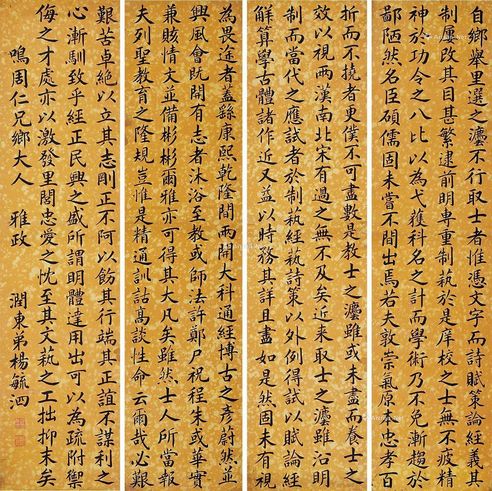 自鄉舉里選之灋不行取士者惟憑文字而詩賦策論經義其
制屢改其目甚繁逮前明專重制蓺於是庠校之士無不疲精
神於功令之八比以為弋獲科名之計而學術乃不免漸趨於
鄙陋然名臣碩儒固未嘗不間出焉若夫敦崇氣原本忠孝百
折而不撓者更僕不可盡數是教士之灋雖或未盡而養士之
效以視兩漢南北宋有過之無不及矣近來取士之灋雖沿明
制而當代之應試者於制蓺經蓺詩策以外例得試以賦論經
解算學古體諸作近又益以時務其詳且盡如是然固未有視
為畏途者蓋繇康熙乾隆間兩開大科通經博古之彥蔚然並
興風會既開有志者沐浴至教或師法許鄭尸祝程朱或華實
兼賅情文並備彬彬爾雅亦可得其大凡矣雖然士人所當報
夫列聖教育之隆規豈惟是精通訓詁高談性命云爾哉必艱
艱苦卓絕以立其志剛正不阿以飭其行端其正誼不謀利之
心漸馴致乎經正民興之盛所謂明體達用出可以為疏附禦
侮之才處亦以激發里閭忠愛之忱至其文蓺之工拙抑末矣
鳴周仁兄鄉大人 雅政
潤東弟楊毓泗